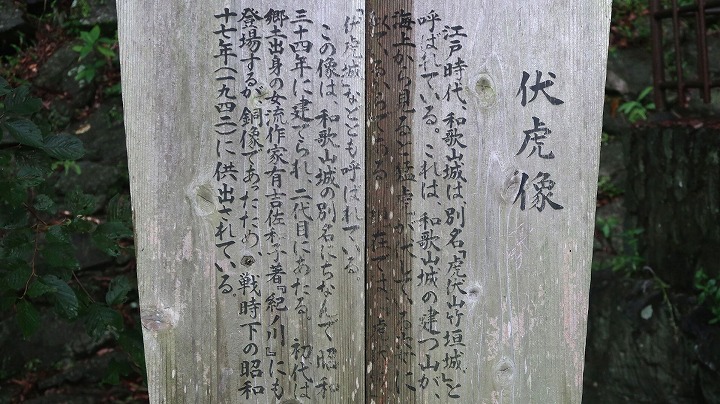 伏虎像
江戸時代、和歌山城は、別名『虎伏山竹垣城』と
呼ばれている。これは、和歌山城の建つ山が、
海上から見ると猛虎が伏している姿に
いるからである 在では、
伏虎城』などとも呼ばれている。
この像は、和歌山城の別名にちなんで昭和
三十四年に建てられ、二代目にあたる。初代は、
郷土出身の女流作家有吉佐和子著『紀ノ川』にも
登場するが銅像であったため、戦時下の昭和
十七年(一九四二)に供出されている。